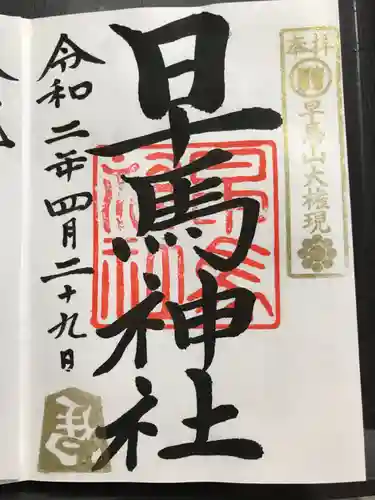 奉拝
早馬山大権現
早馬神社
令和二年四月二十九日